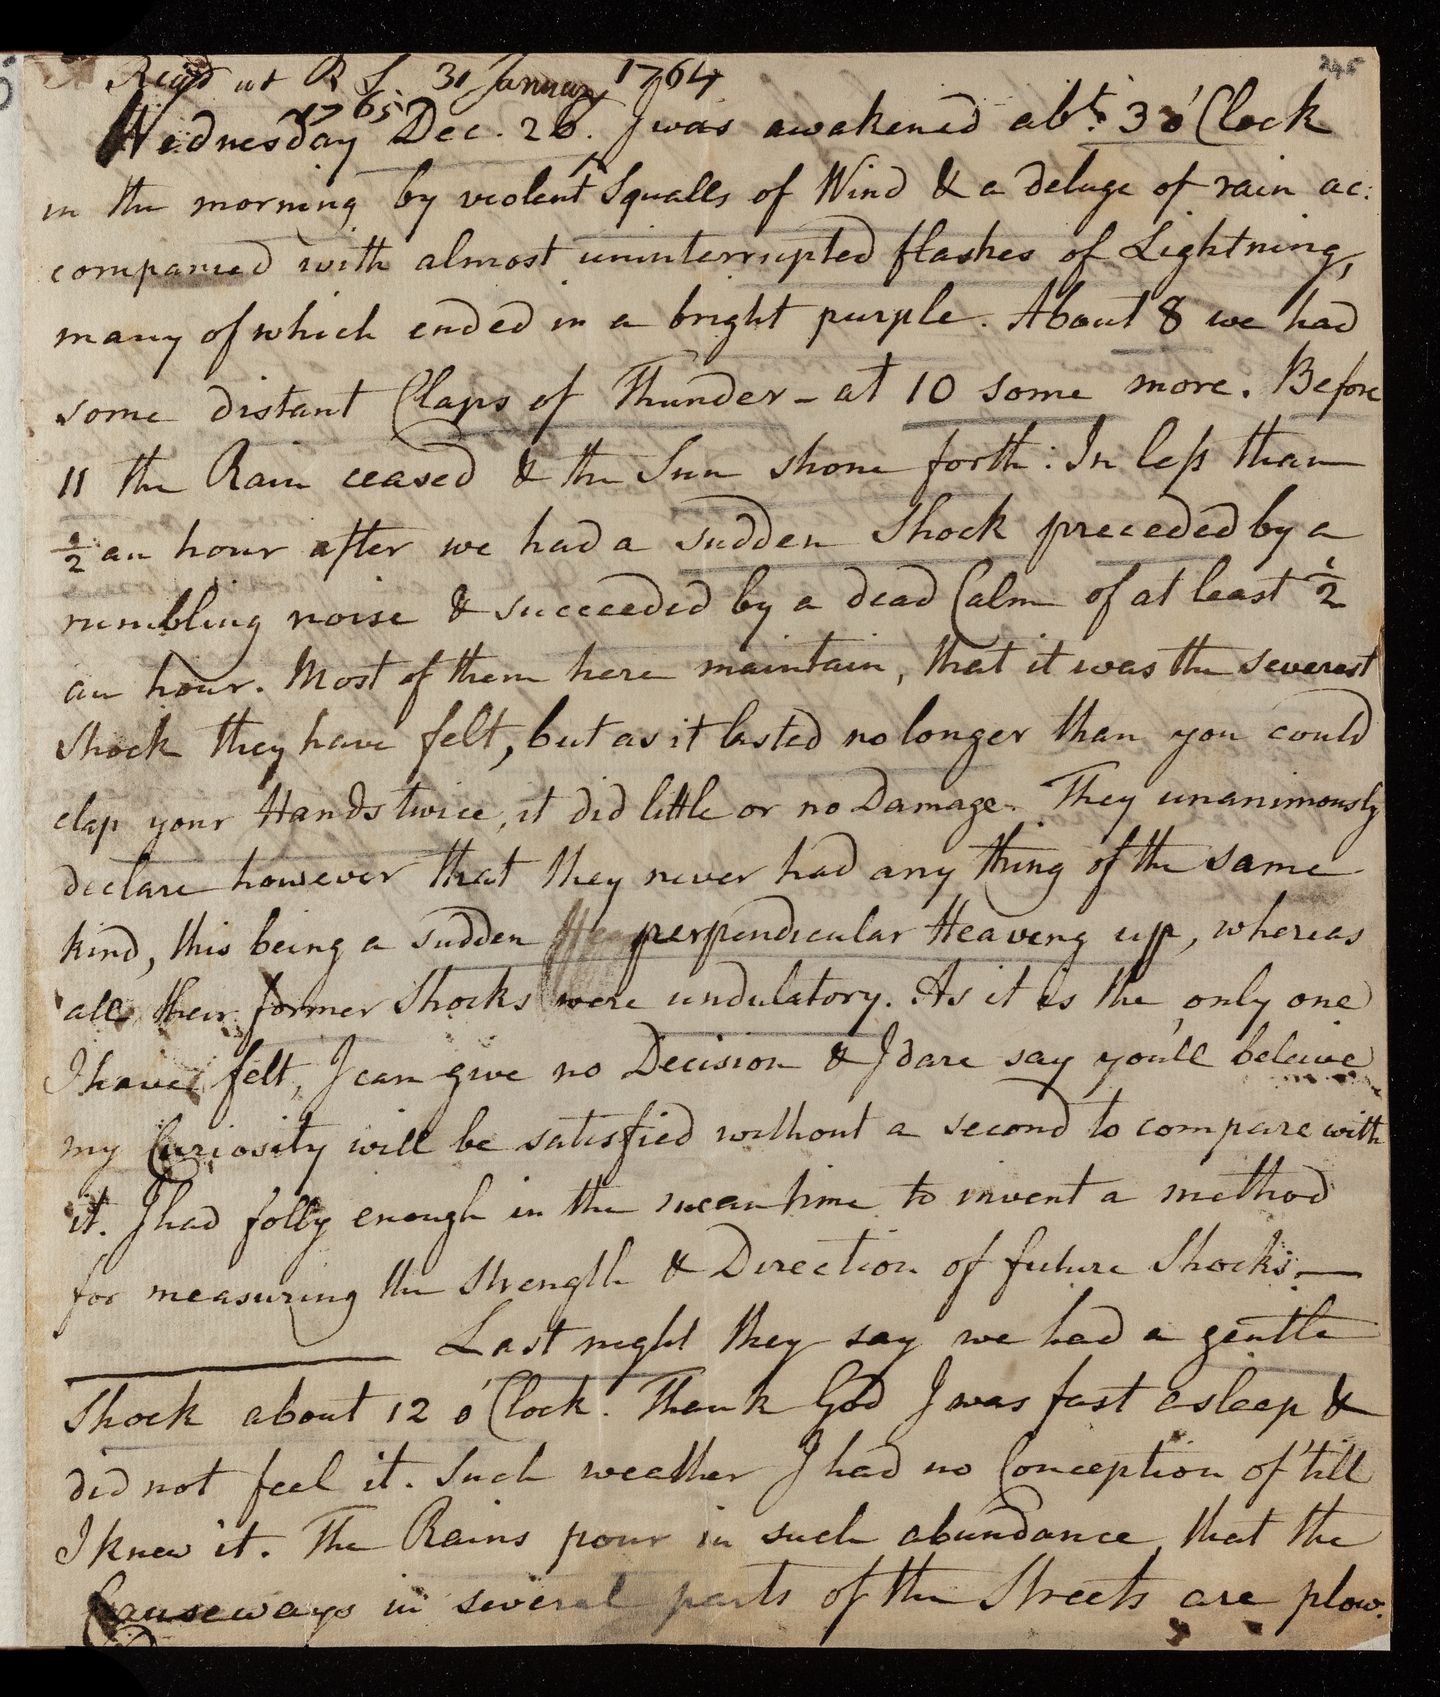 245
Read at R S. 31 January 1764
1765
Wednesday Dec. 26. I was awakened abt. 3 o'Clock
in the morning by violent Squalls of Wind & a deluge of rain ac:
companied with almost uninterrupted flashes of Lightning,
many of which ended in a bright purple. About 8 we had
some distant Claps of Thunder - at 10 some more. Before
11 the Rain ceased & the Sun shone forth: In less than
1/2 an hour after we had a sudden Shock preceded by a
rumbling noise & succeeded by a dead Calm of at least 1/2
an hour. Most of them here maintain, that it was the severest
Shock they have felt, but as it lasted no longer than you could
clap your Hands twice, it did little or no Damage. They unanimously
declare however that they never had any thing of the same
kind, this being a sudden perpendicular Heaving up, whereas
all their former Shocks were undulatory. As it is the only one
I have felt, I can give no Decision & I dare say you'll beleive
my Curiosity will be satisfied without a second to compare with
it. I had folly enough in the mean time to invent a method
for measuring the Strength & Direction of future Shocks. —
Last night they say we had a gentle
Shock about 12 o'Clock. Thank God I was fast asleep &
did not feel it. Such weather I had no Conception of 'till
I knew it. The Rains pour in such abundance that the
Causeways in several parts of the Streets are plow: